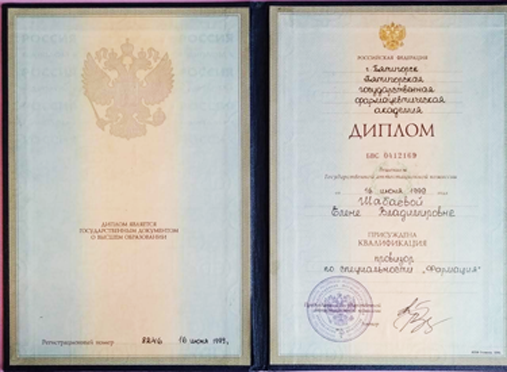 ДИПЛОМ ЯВЛЯЕТСЯ
ГОСУДАРСТВЕННЫМ ДОКУМЕНТОМ
О ВЫСШЕМ ОБРАЗОВАНИИ
Регистрационный номер 8246 16 июня 1999г.
РОССИЙСКАЯ ФЕДЕРАЦИЯ
г. Пятигорск
Пятигорская
государственная
фармацевтическая
академия
ДИПЛОМ
БВС 0412169
Решением
Государственной аттестационной комиссии
от 16 июня 1999 года
Шабаевой
Елене Владимировне
ПРИСУЖДЕНА
КВАЛИФИКАЦИЯ
провизор
по специальности „Фармация"